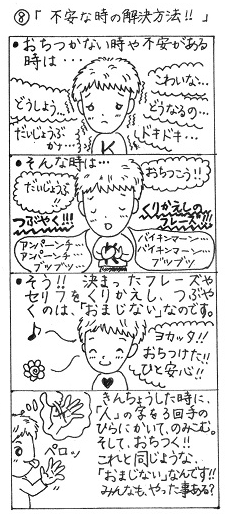 ⑧「不安な時の解決方法!!」
●おちつかない時や不安がある
時は…
こわいな…
どうしよう…
どうなるの…
だいじょうぶ
か…
ドキドキ…
K
●そんな時は…
だいじょうぶ
!!
おちつこう!!
つぶやく!!!
くりかえしの
フレーズ!!!
アンパーンチ…
アンパーンチ…
ブツブツ…
バイキンマーン…
バイキンマーン…
ブツブツ
●そう!! 決まったフレーズや
セリフをくりかえし、つぶや
くのは、「おまじない」なのです。
♪
ヨカッタ!!
おちつけた!!
ひと安心!!
きんちょうした時に、
「人」の字を3回手の
ひらにかいて、のみこむ。
そして、おちつく!!
これと同じような、
「おまじない」なんです!!
みんなも、やった事ある?
人
ペロッ